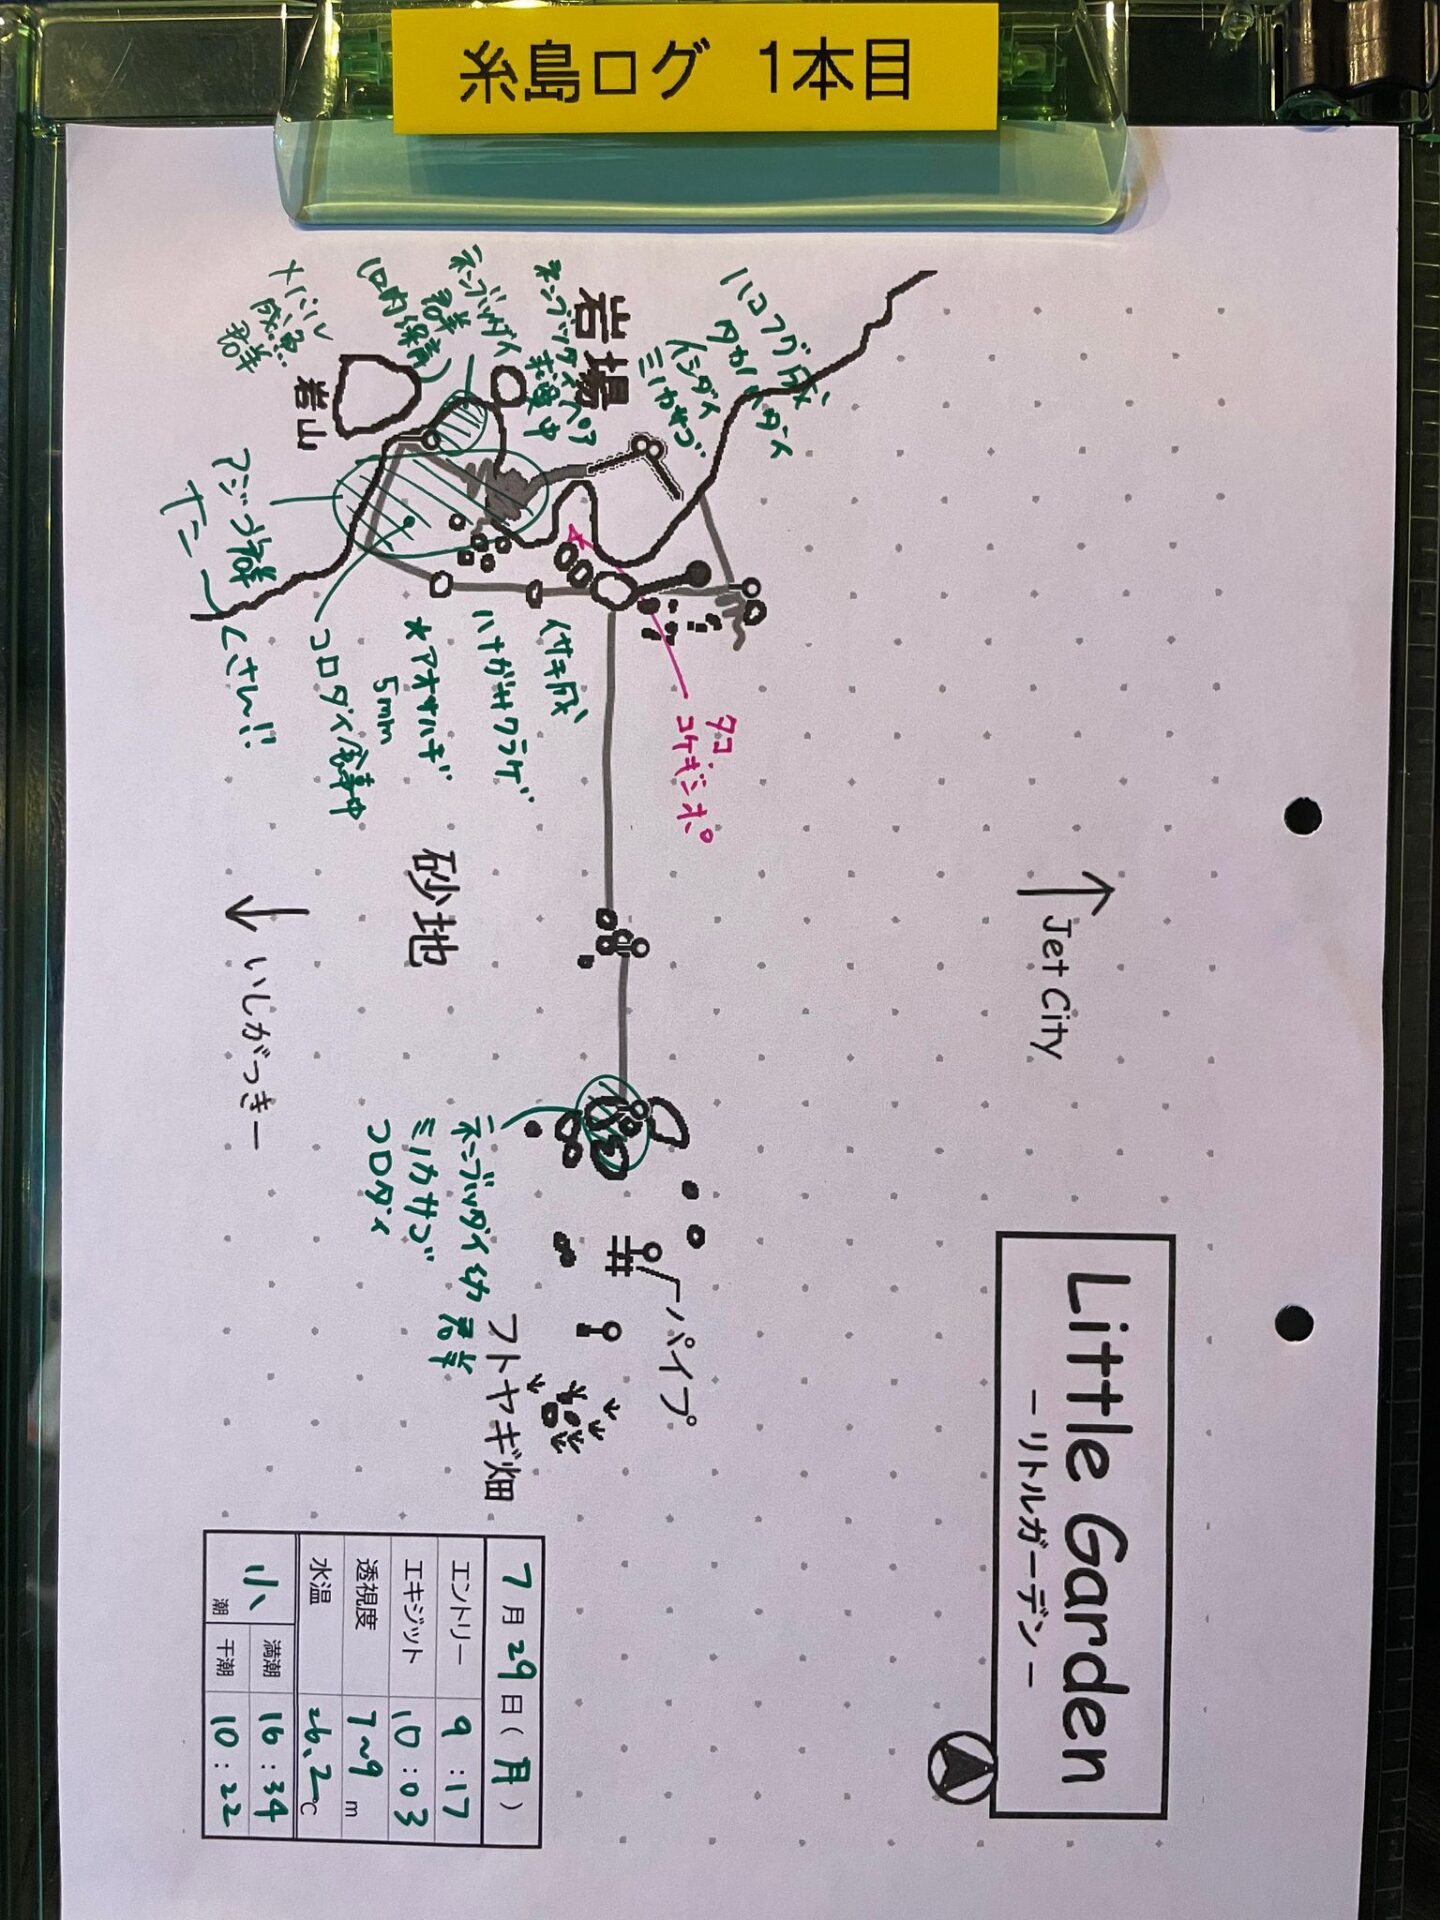 糸島ログ 1本目
Little Garden
－リトルガーデン－
↑ Jet City
岩場
ハコフグ成
タカノハダイ
イシダイ
ミノカサゴ
ネンブツダイペア
求愛中
ネンブツダイ
群
(口内保育)
メバル
成魚
群
岩山
アジ子群
たくさん!!
コロダイ食事中
*アオサハギ
5mm
ハナガサクラゲ
イサキ成
タコ
コケギンポ
砂地
↓ いしがっきー
ネンブツダイ幼
群
ミノカサゴ
コロダイ
パイプ
フトヤギ畑
7月29日(月)
エントリー 9:17
エキジット 10:03
透視度 7~9 m
水温 26.2℃
小潮
満潮 16:34
干潮 10:22